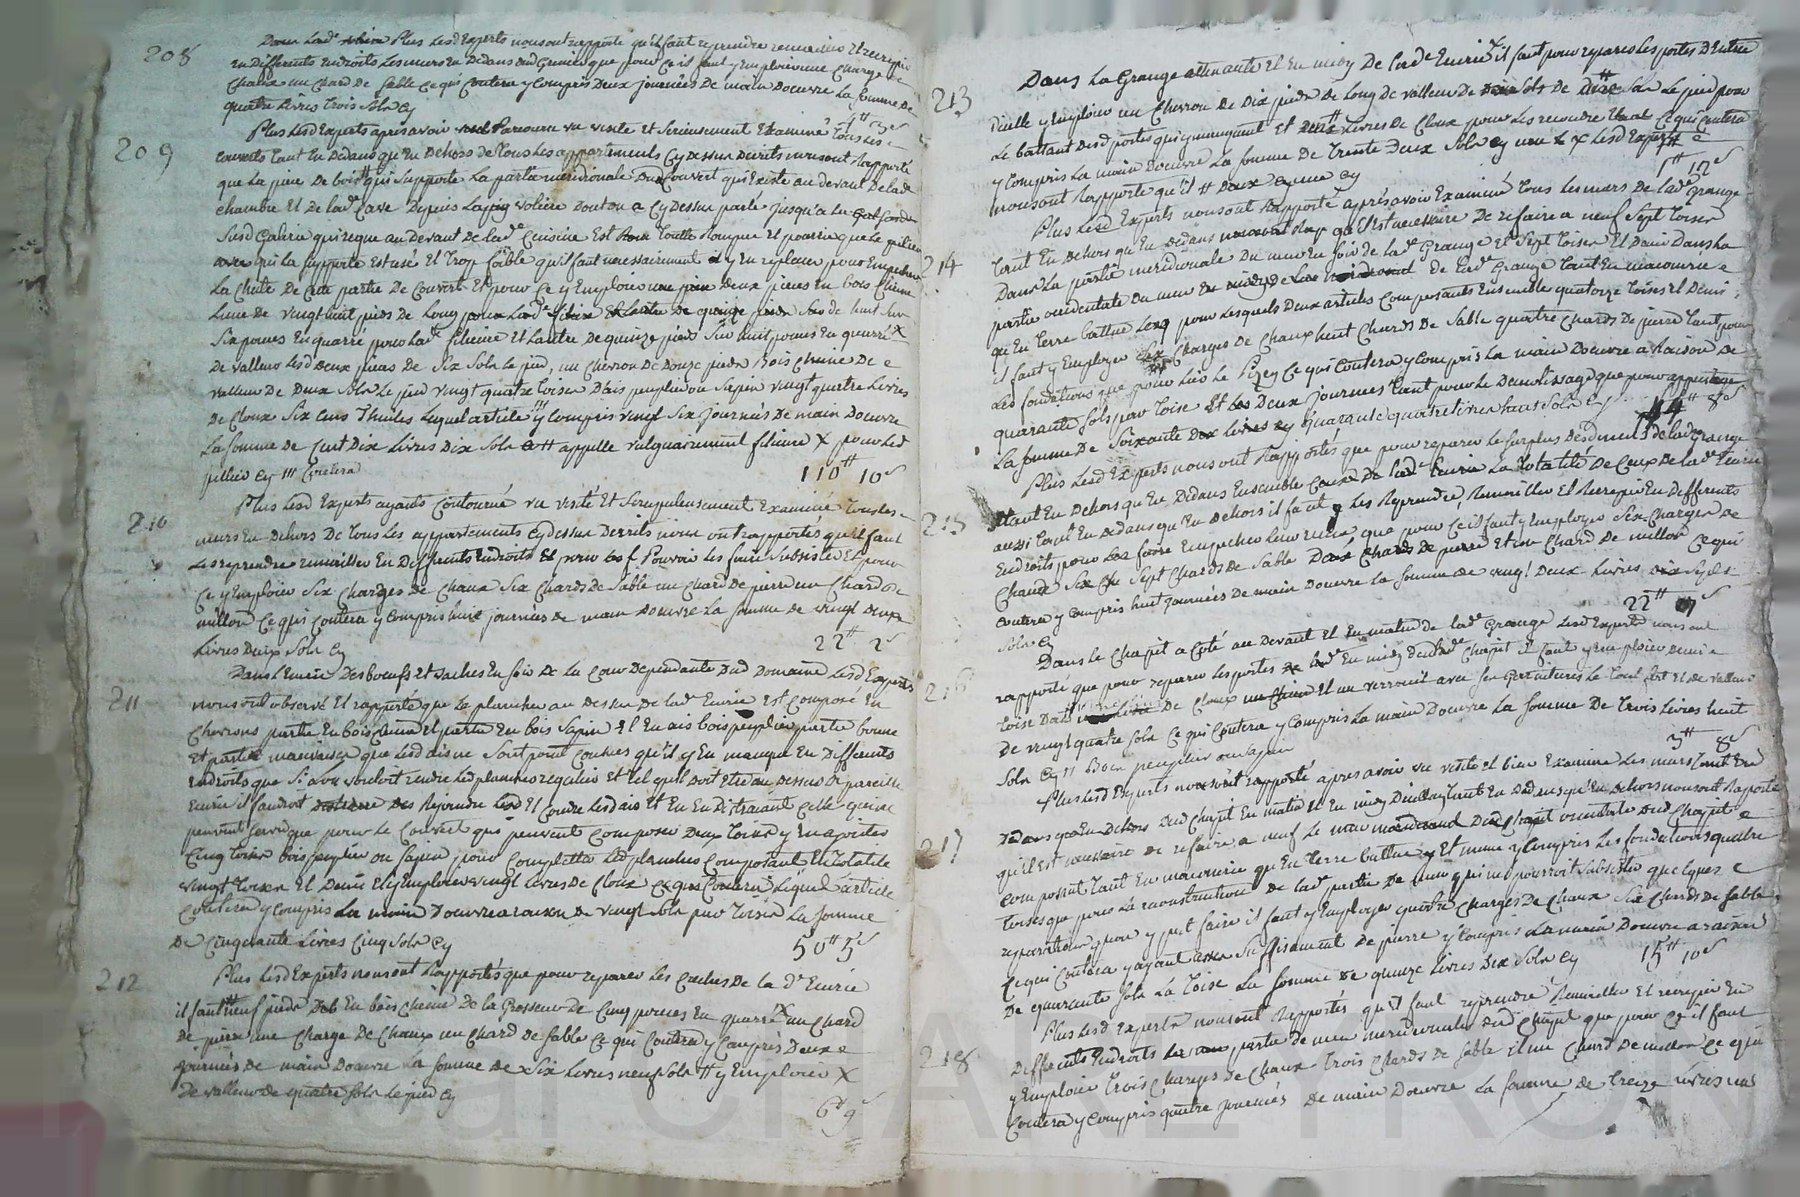 208
Plus Lesd Experts nous ont rapporté qu'il faut reprendre remailler Et recrepir
En differents Endroits Les murs En Dedans dud Grenier que pour ce il faut y Emploier une Charge de
Chaux un Chard de sable Ce qui Coutera y Compris Deux journées De main Doeuvre La somme de
quatre Livres trois Sols Cy
4# 3s
209
Plus Lesd Experts après avoir Parcouru vu visité Et Serieusement Examiné Tous Les
couverts tant En Dedans qu'En Dehors de Tous Les appartements Cy Dessus Decrits nous ont Rapporté
que La piece De bois qui Supporte La partie meridionale Du Couvert qui Existe au devant De lade
chambre Et De lade Cave Depuis La voliere Dont on a Cy Dessus parlé jusqu'a La
Susd Galerie qui regne au Devant de lade Cuisine Est Toutte Rompue Et pourrie que Le pilier
qui La supporte Est usé Et trop faible qu'il faut necessairement y En replacer pour Empecher
La Chute De Cette partie De Couvert Et pour Ce y Emploier Deux pieces En bois Chene
L'une de vingt huit pieds de Long de huit sur
Six pouces En quarré pour lade filiere Et L'autre De quinze pieds Sur huit pouces En quarré X
De valleur Lesd Deux pieces De Six Sols Le pied, un Chevron de Douze pieds Bois Chene De
valleur De Deux Sols Le pied vingt quatre toises D'ais peuplier ou Sapin vingt quatre Livres
De Cloux Six Cens Thuiles Lequel article y Compris vingt Six journées De main Doeuvre
La somme De Cent Dix Livres Dix Sols Cy # appellé vulguairement filiere X pour Led
pillier Cy /// Coutera
110# 10s
210
Plus Lesd Experts ayants Contourné vu visité Et Scrupuleusement Examiné Tous Les
murs En Dehors De Tous Les appartements Cy Dessus Decrits nous ont rapportés qu'il faut
Les reprendre remailler En Differents Endroits Et pour Les faire Subsister Et pour
Ce y Emploier Six Charges de Chaux Six Chards de Sable un Chard De pierre un Chard De
millon Ce qui Coutera y Compris huit journées de main Doeuvre La somme de vingt Deux
Livres Deux Sols Cy
22# 2s
211
Dans L'Ecurie Des boeufs Et vaches En soir De La Cour Dependante Dud Domaine Lesd Experts
nous ont observé Et rapporté que Le plancher au Dessus De lade Ecurie Est Composé En
Chevrons partie En bois Chene Et partie En bois Sapin Et En ais bois peuplier partie bonne
Et partie mauvaise que Lesd ais ne Sont point Cousues qu'il y En manque En Differents
Endroits que Si on vouloit rendre Led plancher regulier Et tel qu'il Doit Etre au Dessus De pareille
Ecurie il faudroit Rejoindre Et Coudre Lesd ais Et En En Distraiant Celles qui ne
peuvent servir que pour Le Couvert qui peuvent Composer Deux Toises y En ajouter
Cinq toises bois peuplier ou sapin pour Completter Led plancher Composant En totalité
vingt toises Et Demie Et y Emploier vingt Livres De Cloux Lequel article
Coutera y Compris La main Doeuvre a raison De vingt Sols par Toise La somme
De Cinquante Livres Cinq Sols Cy
50# 5s
212
Plus Lesd Experts nous ont Rapportés que pour reparer Les Creches De La de Ecurie
il faut neuf pieds En bois Chene De La Grosseur De Cinq pouces En quarré X un Chard
De pierre une Charge De Chaux un Chard de sable Ce qui Coutera y Compris Deux
journées de main Doeuvre La somme de Six Livres neuf Sols # y Emploier X
De valleur de quatre Sols Le pied Cy
6# 9s
213
Dans La Grange attenante Et En midy De lade Ecurie il faut pour reparer Les portes D'Entrée
D'icelle y Emploier un Chevron de Dix pieds De Long De valleur De Sols Le pied pour
Le battant Desd portes qui y manquent Et Livres De Cloux pour Les recoudre Ce qui Coutera
y Compris La main Doeuvre La somme De trente Deux Sols Cy
1# 12s
Lesd Experts nous ont Rapporté qu'il
214
Plus Lesd Experts nous ont Rapporté après avoir Examiné Tous Les murs De lade Grange
tant En Dehors qu'En Dedans qu'il Est necessaire De refaire a neuf Sept Toises
Dans La partie meridionale Du mur En soir de lade Grange Et Sept Toises Et Demi Dans La
partie occidentale Du mur En midy de lade Grange tant En maconnerie
qu'En terre battue pour Lesquels Deux articles Composants Ensemble quatorze toises Et Demi
il faut y Emploier Charges De Chaux huit Chards De Sable quatre Chards De pierre tant pour
Les fondations que pour Lier Le Pizey Ce qui Coutera y Compris La main Doeuvre a Raison De
quarante Sols par toise Et Deux journées tant pour Le Demolissage que pour
La somme De quarante quatre Livres huit Sols Cy
44# 8s
215
Plus Lesd Experts nous ont Rapportés que pour reparer Le surplus Desd murs De lade Grange
tant En Dehors qu'En Dedans Ensemble Ceux De lade Ecurie La totalité De Ceux De lade Ecurie
aussi tant En Dedans qu'En Dehors il faut Les Reprendre Remailler Et Recrepir En Differents
Endroits pour Empecher Leur ruine que pour Ce il faut y Emploier Six Charges De
Chaux Sept Chards de Sable Deux Chards De pierre Et un Chard De millon Ce qui
Coutera y Compris huit journées De main Doeuvre La somme de vingt Deux Livres Sept
Sols Cy
22# 7s
216
Dans Le Chapit a Coté au Devant Et En matin De lade Grange Lesd Experts nous ont
rapporté que pour reparer Les portes En midy Dud Chapit il faut y Emploier Demie
toise D'ais De Cloux Et un verrouil avec Ses Garnitures Le Tout De valleur
De vingt quatre Sols Ce qui Coutera y Compris La main Doeuvre La somme De trois Livres huit
Sols Cy // Bois peuplier ou sapin
3# 8s
217
Plus Lesd Experts nous ont rapporté après avoir vu visité Et bien Examiné Les murs
Dud Chapit En matin Et En midy D'icelluy tant En Dedans qu'En Dehors nous ont Rapporté
qu'il Est necessaire de refaire a neuf Le mur orientale Dud Chapit
Composant tant En maconnerie qu'En Terre battue y Compris Les fondations quatre
toises que pour La reconstruction De lade partie De mur qui ne pourroit Subsister quelques
reparations qu'on y put faire il faut y Emploier quatre Charges De Chaux Six Chards De Sable
Ce qui Coutera y ayant Suffisament De pierre y Compris La main Doeuvre a raison
De quarante Sols La Toise La somme De quinze Livres Dix Sols Cy
15# 10s
218
Plus Lesd Experts nous ont Rapportés qu'il faut reprendre Remailler Et recrepir En
Differents Endroits partie De mur meridionale Dud Chapit que pour Ce il faut
y Emploier trois Charges De Chaux trois Chards De sable Et un Chard De millon Ce qui
Coutera y Compris quatre journées De main Doeuvre La somme De treize Livres